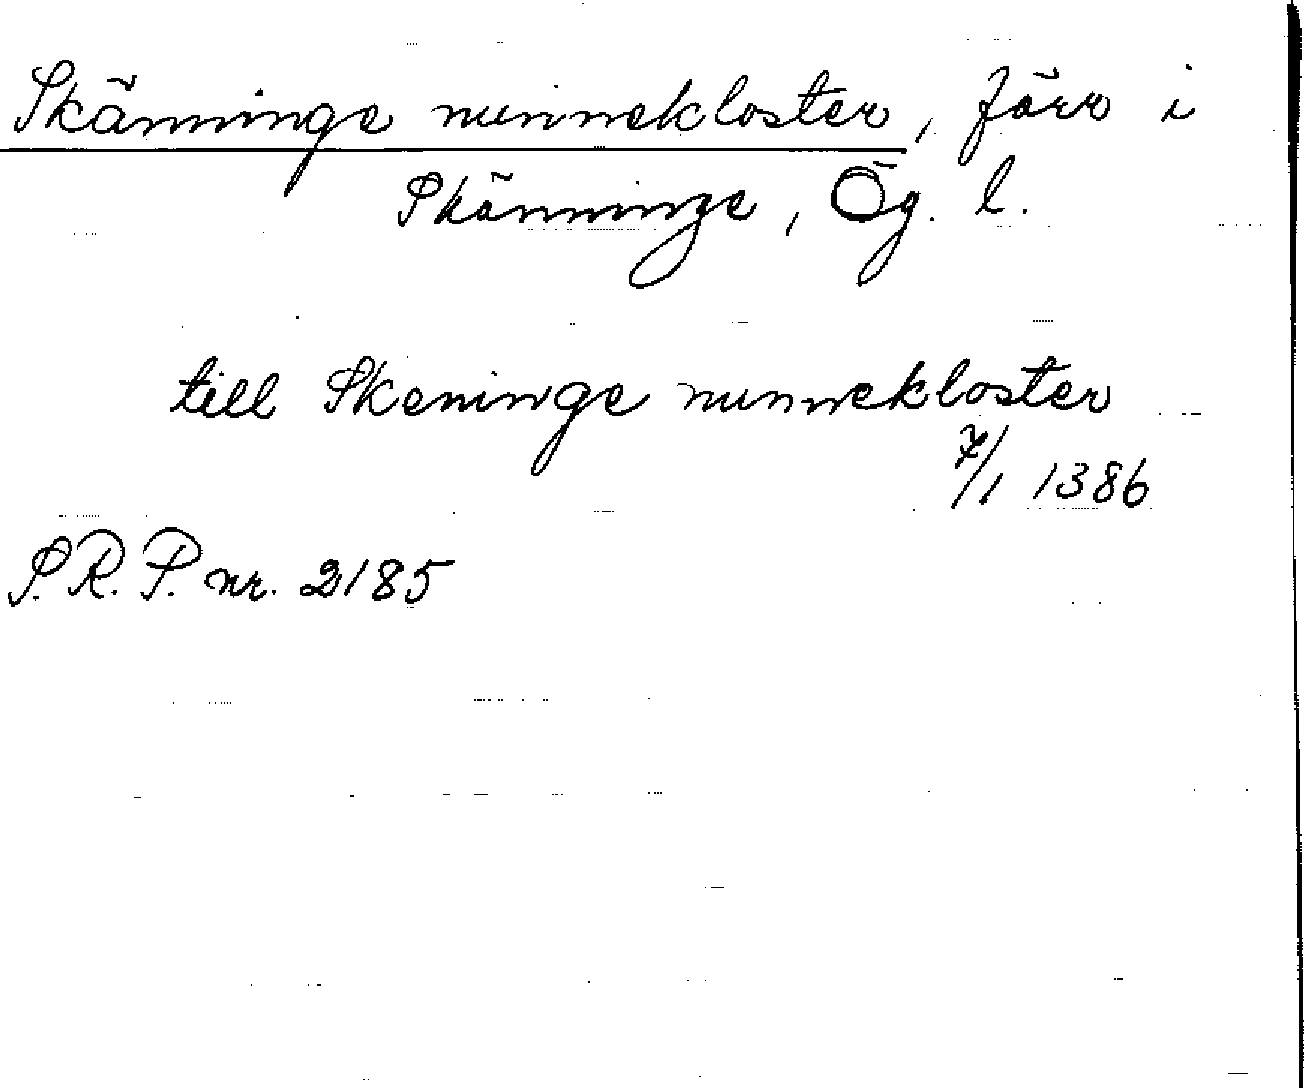 Skänninge nunnekloster, förr i
Skänninge, Ög. l.
till Skeninge nunnekloster
7/1 1386
S.R.P. nr. 2185